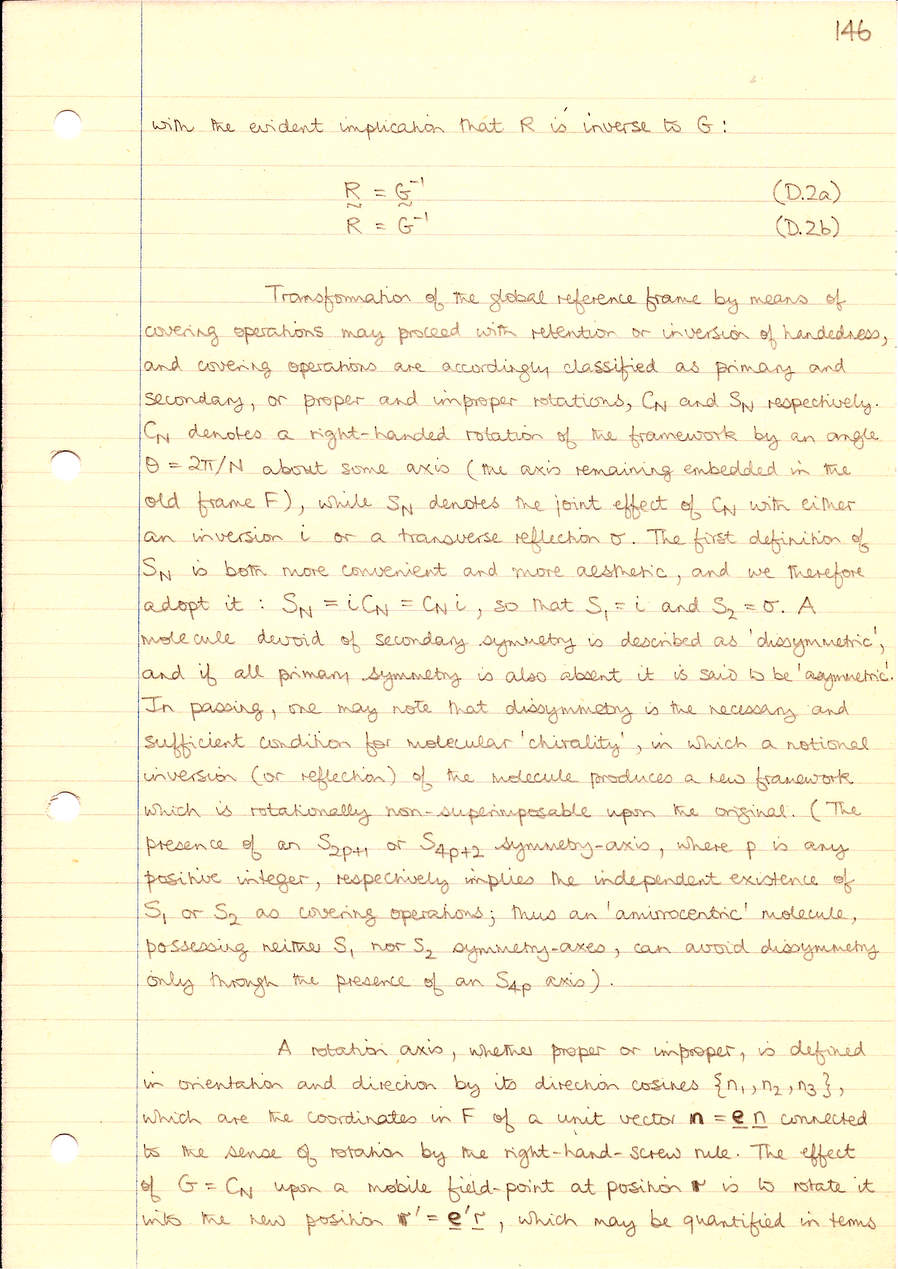 146
with the evident implication that R is inverse to G :
R = G⁻¹ (D.2a)
R = G⁻¹ (D.2b)
Transformation of the global reference frame by means of
covering operations may proceed with retention or inversion of handedness,
and covering operations are accordingly classified as primary and
secondary, or proper and improper rotations, C_N and S_N respectively.
C_N denotes a right-handed rotation of the framework by an angle
θ = 2π/N about some axis (the axis remaining embedded in the
old frame F), while S_N denotes the joint effect of C_N with either
an inversion i or a transverse reflection σ. The first definition of
S_N is both more convenient and more aesthetic, and we therefore
adopt it : S_N = i C_N = C_N i, so that S₁ = i and S₂ = σ. A
molecule devoid of secondary symmetry is described as 'dissymmetric',
and if all primary symmetry is also absent it is said to be 'asymmetric'.
In passing, one may note that dissymmetry is the necessary and
sufficient condition for molecular 'chirality', in which a notional
inversion (or reflection) of the molecule produces a new framework
which is rotationally non-superimposable upon the original. (The
presence of an S_2p+1 or S_4p+2 symmetry-axis, where p is any
positive integer, respectively implies the independent existence of
S₁ or S₂ as covering operations; thus an 'amirrocentric' molecule,
possessing neither S₁ nor S₂ symmetry-axes, can avoid dissymmetry
only through the presence of an S_4p axis).
A rotation axis, whether proper or improper, is defined
in orientation and direction by its direction cosines {n₁, n₂, n₃},
which are the coordinates in F of a unit vector n = e n connected
to the sense of rotation by the right-hand-screw rule. The effect
of G = C_N upon a mobile field-point at position r is to rotate it
into the new position r' = e' r, which may be quantified in terms